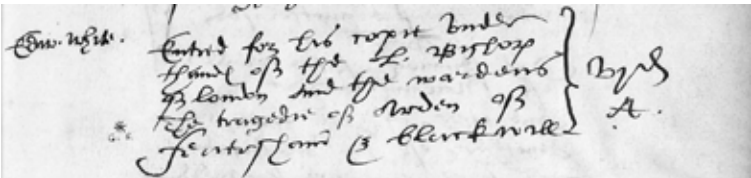 Edw. White. Entred for his copie vnder
thand of the L. Bishop
of london and the wardens vjd
The tragedie of Arden of A.
feuersham & blackwill